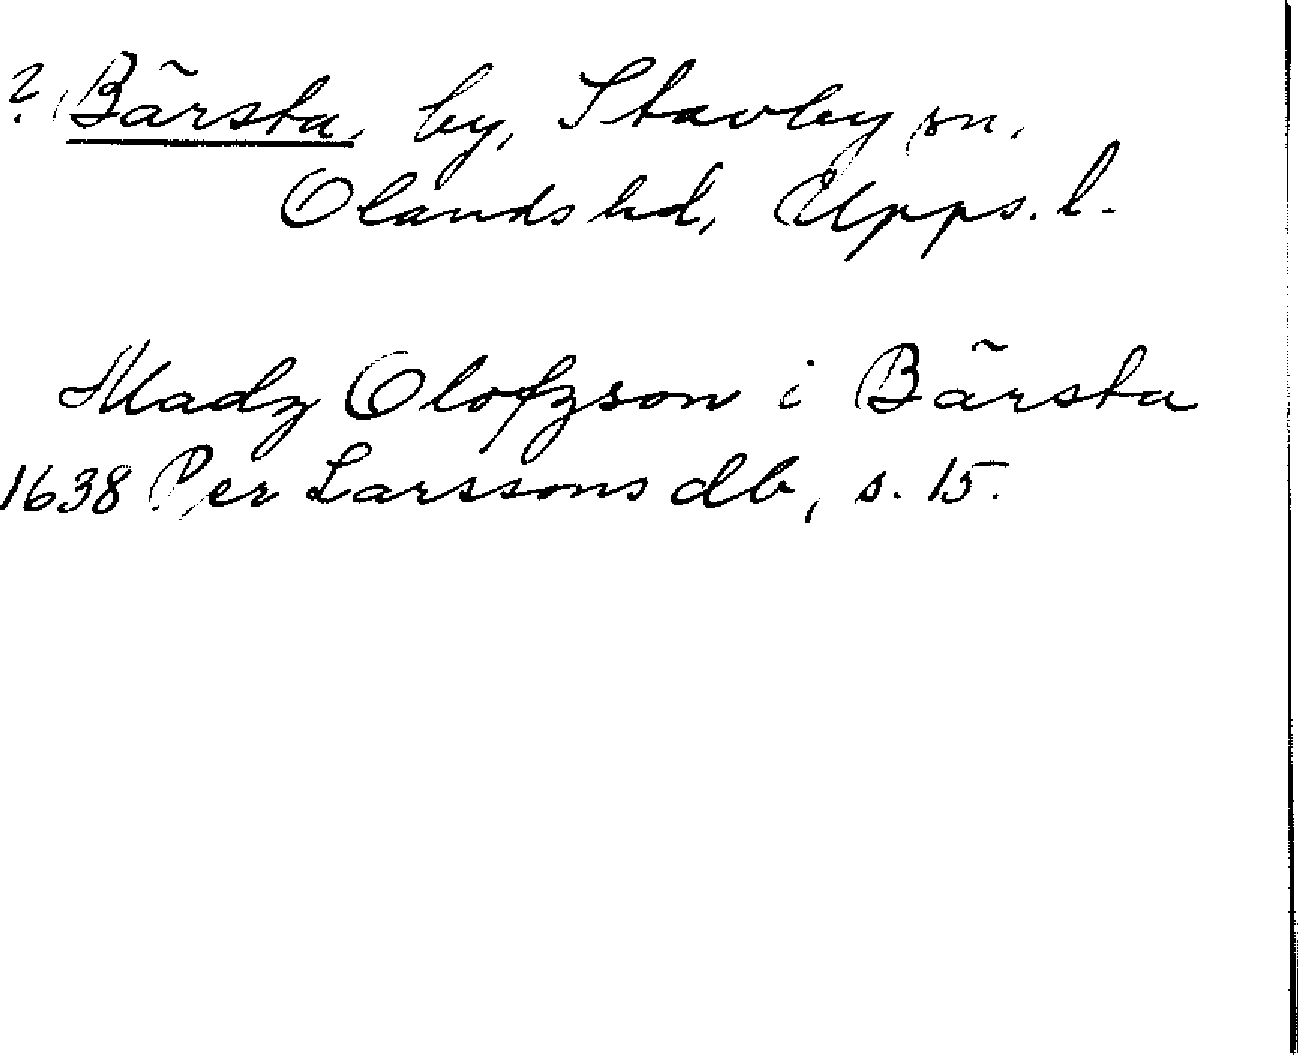 ? Bärsta, by, Stavby sn.
Olands hd, Upps. l.
Madz Olofzson i Bärsta
1638 Per Larssons db, s. 15.